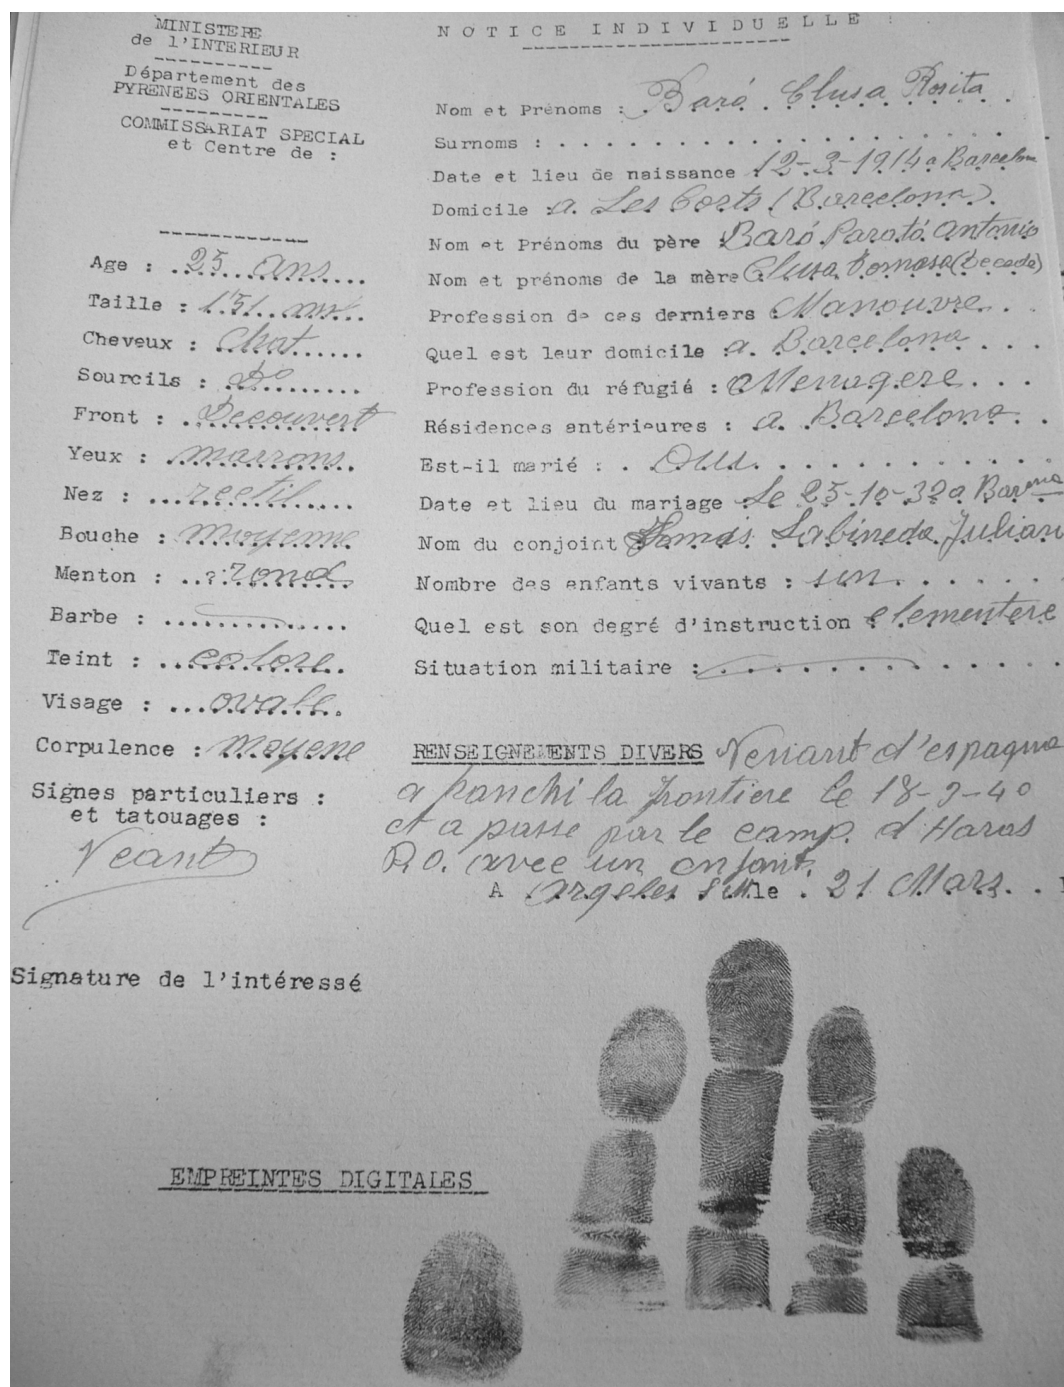 MINISTERE
de l'INTERIEUR
Département des
PYRENEES ORIENTALES
COMMISSARIAT SPECIAL
et Centre de :
Age : 25 ans
Taille : 1'51
Cheveux : Chat
Sourcils : do
Front : Decouvert
Yeux : marrons
Nez : rectil
Bouche : moyenne
Menton : rond
Barbe :
Teint : colore
Visage : ovale
Corpulence : moyene
Signes particuliers :
et tatouages :
Neant
NOTICE INDIVIDUELLE :
Nom et Prénoms : Baró Clusa Rosita
Surnoms :
Date et lieu de naissance 12-3-1914 a Barcelone
Domicile : a Les Corts (Barcelona)
Nom et Prénoms du père Baró Antonio
Nom et prénoms de la mère Clusa Tomasa
Profession de ces derniers Manouvre
Quel est leur domicile : a Barcelona
Profession du réfugié : Menagere
Résidences antérieures : a Barcelona
Est-il marié : Oui
Date et lieu du mariage Le 25-10-32 a
Nom du conjoint Labineda Julian
Nombre des enfants vivants : un
Quel est son degré d'instruction elementere
Situation militaire :
RENSEIGNEMENTS DIVERS Venant d'espagne
a franchi la frontiere le 18-2-40
et a passe par le camp d'Haras
P.O. avec un enfant.
A Argeles le 21 Mars
Signature de l'intéressé
EMPREINTES DIGITALES